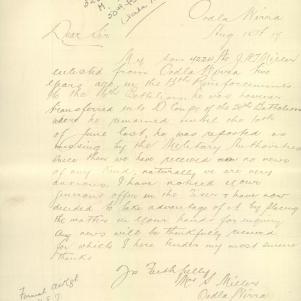 Oodla Wirra
Aug 16th 17
Dear Sir
My son 4224 A. J. H. Miller
enlisted from Oodla Wirra two
years ago in the 13th Reinforcements
to the Battalion, he was
transferred into D Comp of the 50th Battalion
where he remained until the 10th
of June last, he was reported as
missing by the Military Authorities
since then we have received now no news
of any kind, naturally we are very
anxious. I have noticed your
offer in the and have now
decided to take advantage of it by placing
the matter in your hands for inquiry
any news will be thankfully received
for which I here tender my most sincere
thanks
Yrs Faithfully
Mrs S Miller
Oodla Wirra